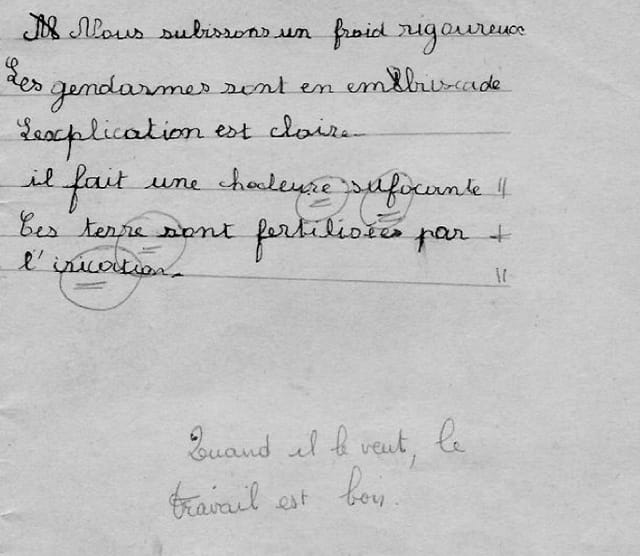 Nous subissons un froid rigoureux
Les gendarmes sont en embriscade
L'explication est claire
il fait une chaleure sufocante
Ces terre sont fertilisées par
l'irication.
Quand il le veut, le
travail est bon.